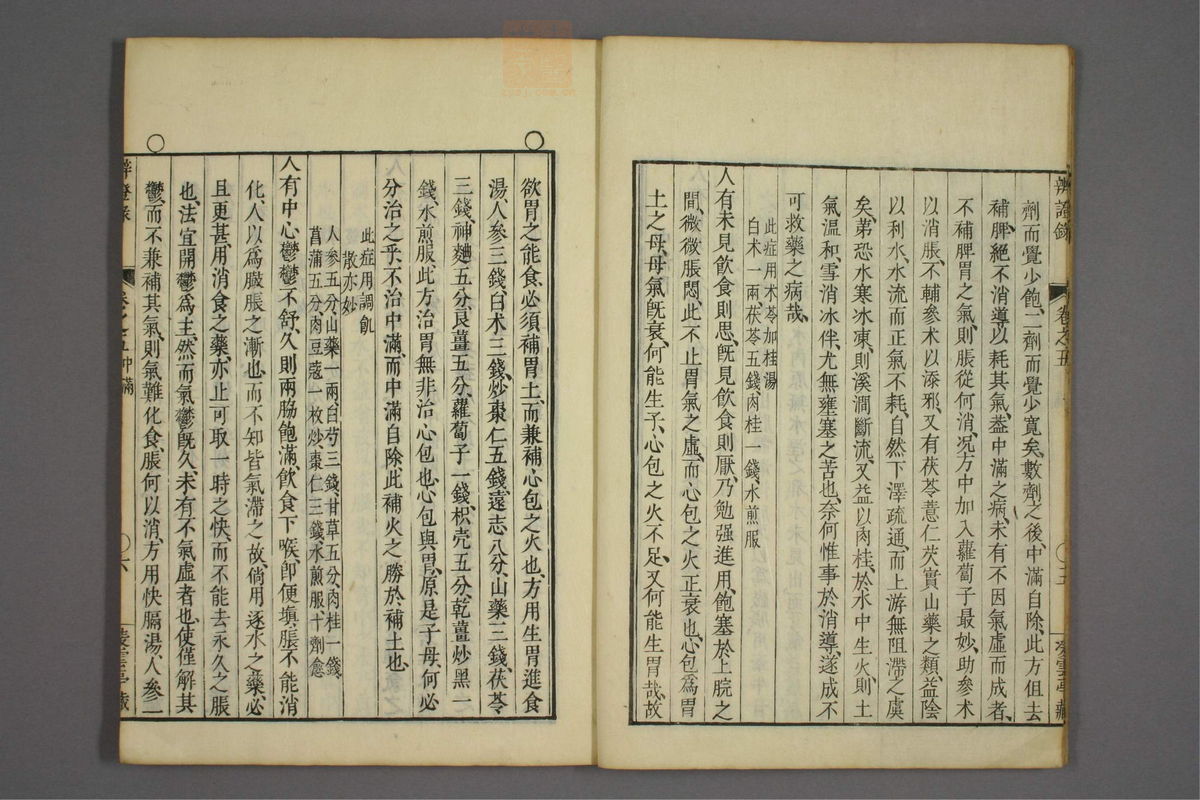 辨證錄
卷之五
凌雲亭藏
劑而覺少飽、二劑而覺少寬矣、數劑之後、中滿自除、此方但去
補脾、絕不消導以耗其氣、葢中滿之病、未有不因氣虛而成者、
不補脾胃之氣、則脹從何消、况方中加入蘿蔔子最妙、助參术
以消脹、不輔參术以添邪、又有茯苓薏仁芡實山藥之類、益陰
以利水、水流而正氣不耗、自然下澤疏通、而上游無阻滯之虞
矣、第恐水寒冰凍、則溪澗斷流、又益以肉桂、於水中生火、則土
氣溫和、雪消冰伴、尤無壅塞之苦也、奈何惟事於消導、遂成不
可救藥之病哉、
此症用术苓加桂湯
白术一兩、茯苓五錢、肉桂一錢、水煎服
人有未見飲食則思、旣見飲食則厭、乃勉强進用、飽塞於上脘之
間、微微脹悶、此不止胃氣之虛、而心包之火正衰也、心包爲胃
土之母、母氣旣衰、何能生子、心包之火不足、又何能生胃哉、故
欲胃之能食、必須補胃土、而兼補心包之火也、方用生胃進食
湯、人參三錢、白术三錢、炒棗仁五錢、遠志八分、山藥三錢、茯苓
三錢、神麯五分、良薑五分、蘿蔔子一錢、枳壳五分、乾薑炒黑一
錢、水煎服、此方治胃、無非治心包也、心包與胃、原是子母、何必
分治之乎、不治中滿、而中滿自除、此補火之勝於補土也、
此症用調飢
散亦妙
人參五分、山藥一兩、白芍三錢、甘草五分、肉桂一錢、
菖蒲五分、肉豆蔻一枚、炒棗仁三錢、水煎服十劑愈
人有中心鬱鬱不舒、久則兩脇飽滿、飲食下喉、卽便塡脹、不能消
化、人以爲臌脹之漸也、而不知皆氣滯之故、倘用逐水之藥、必
且更甚、用消食之藥、亦止可取一時之快、而不能去永久之脹
也、法宜開鬱爲主、然而氣鬱旣久、未有不氣虛者也、使僅解其
鬱、而不兼補其氣、則氣難化食、脹何以消、方用快膈湯、人參一
辨證錄
卷之五 中滿
六
凌雲亭藏